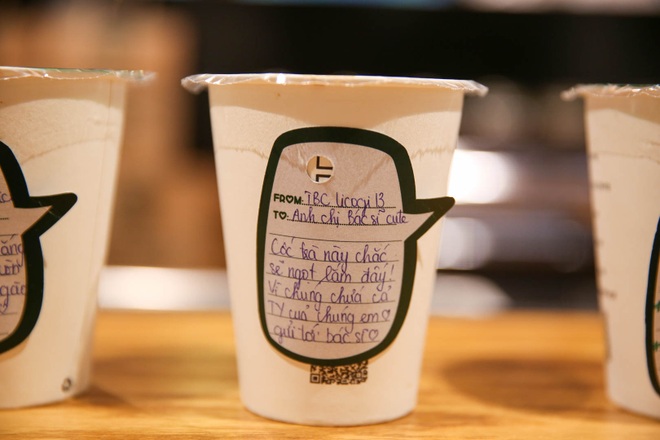 FROM: TBC licogi 13
TO: Anh chị bác sĩ cute
Cốc trà này chắc
sẽ ngọt lắm đấy!
Vì chúng chứa cả
TY của chúng em♡
gửi tới bác sĩ♡